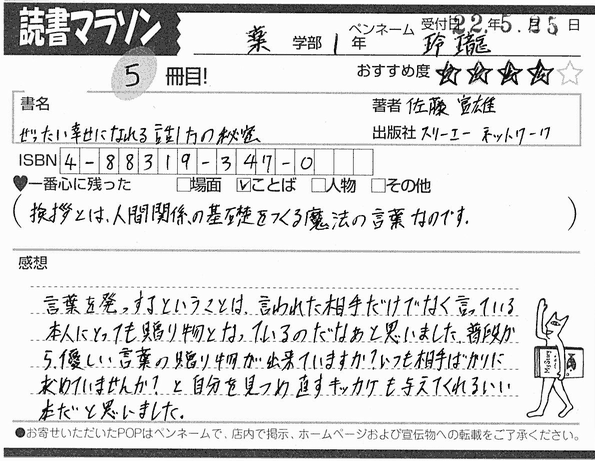 読書マラソン
薬 学部 1 年 ペンネーム 玲瓏 受付日 22年 5.月25日
5 冊目! おすすめ度 ★★★★☆
書名 ぜったい幸せになれる話し方の秘密
著者 佐藤 富雄
出版社 スリーエー ネットワーク
ISBN 4-88319-347-0
♥一番心に残った □場面 ☑ことば □人物 □その他
(挨拶とは、人間関係の基礎をつくる魔法の言葉なのです。)
感想
言葉を発っするということは、言われた相手だけでなく言っている
本人にとっても贈り物となっているのだなあと思いました。普段か
ら、優しい言葉の贈り物が出来ていますか?いつも相手ばかりに
求めていませんか?と自分を見つめ直すキッカケも与えてくれるいい
本だと思いました。
●お寄せいただいたPOPはペンネームで、店内で掲示、ホームページおよび宣伝物への転載をご了承ください。